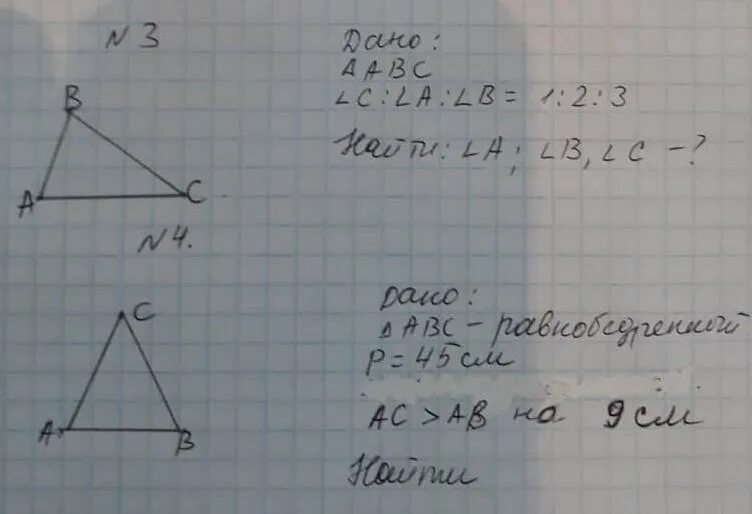 N 3
Дано:
ΔABC
∠C:∠A:∠B = 1:2:3
Найти: ∠A; ∠B, ∠C -?
B
A
C
N 4.
Дано:
ΔABC - равнобедренный
P = 45 см
AC > AB на 9 см
Найти
C
A
B